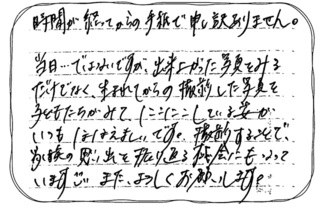 時間が経ってからの手紙で申し訳ありません。
当日…ではないですが、出来上がった写真をみる
だけでなく、生まれてからの撮影した写真を
子どもたちがみて、にこにこしている姿が
いつもほほえましいです。撮影することで、
家族の思い出を振り返る機会にもなって
います。また、よろしくお願いします。